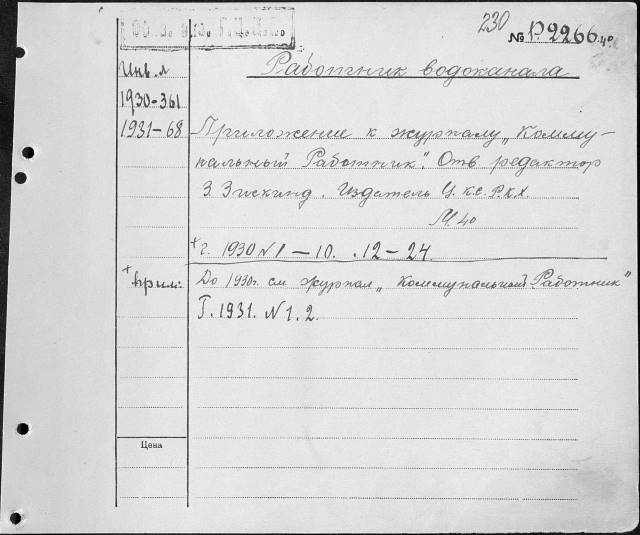 230
№ Р.2266 4°
Работник водоканала
Инв. л
1930-361
1931-68
Приложение к журналу „Комму-
нальный Работник". Отв редактор
З. Зискинд. Издатель Ц.К.С.Р.К.Х
М. 4°
+ г. 1930 N 1 — 10. . 12 — 24.
+ прим: До 1930г. см журнал „Коммунальный Работник"
Г. 1931. N 1. 2.
Цена